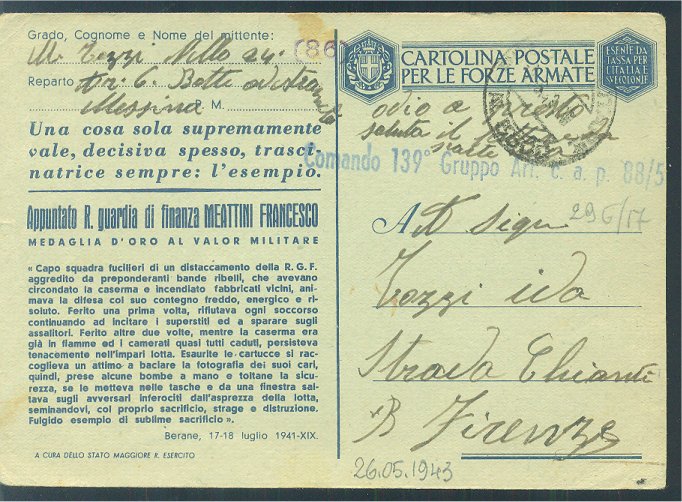 Grado, Cognome e Nome del mittente:
M Tozzi Nello
(86)
Reparto
6 Batt
Messina P. M.
Una cosa sola supremamente
vale, decisiva spesso, trasci-
natrice sempre: l'esempio.
Appuntato R. guardia di finanza MEATTINI FRANCESCO
MEDAGLIA D'ORO AL VALOR MILITARE
« Capo squadra fucilieri di un distaccamento della R. G. F.
aggredito da preponderanti bande ribelli, che avevano
circondato la caserma e incendiato fabbricati vicini, ani-
mava la difesa col suo contegno freddo, energico e ri-
soluto. Ferito una prima volta, rifiutava ogni soccorso
continuando ad incitare i superstiti ed a sparare sugli
assalitori. Ferito altre due volte, mentre la caserma era
già in fiamme ed i camerati quasi tutti caduti, persisteva
tenacemente nell'impari lotta. Esaurite le cartucce si rac-
coglieva un attimo a baciare la fotografia dei suoi cari,
quindi, prese alcune bombe a mano e toltane la sicu-
rezza, se le metteva nelle tasche e da una finestra sal-
tava sugli avversari inferociti dall'asprezza della lotta,
seminandovi, col proprio sacrificio, strage e distruzione.
Fulgido esempio di sublime sacrificio ».
Berane, 17-18 luglio 1941-XIX.
A CURA DELLO STATO MAGGIORE R. ESERCITO
CARTOLINA POSTALE
PER LE FORZE ARMATE
ESENTE DA
TASSA PER
L'ITALIA E
SVE POSIZIONI
saluta il
Comando 139° Gruppo Art. c. a. p. 88/5
296/17
A
Tozzi Ida
Strada Chianti
Firenze
26.05.1943